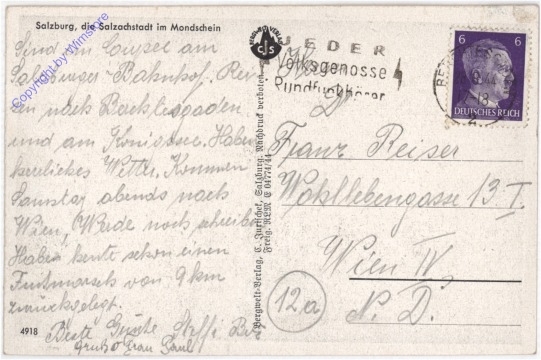 Salzburg, die Salzachstadt im Mondschein
Sind im am
Salzburger Bahnhof.
sen nach
und am Königssee. Haben
herrliches Wetter. Kommen
Samstag abends nach
Wien, Werde noch schreiben
Haben heute schon einen
Fußmarsch von 9 km
zurückgelegt.
Beste Grüße Steffi
Gruß Frau
4918
Bergwelt-Verlag, C. Jurischek, Salzburg. Nachdruck verboten.
Freig. RLM E 0474/44
CJS
JEDER
Volksgenosse
Rundfunkhörer
6 6
DEUTSCHES REICH
Franz Reiser
Wohllebengasse 13 I.
Wien IV
N. D.
12a
Copyright by Wimstore